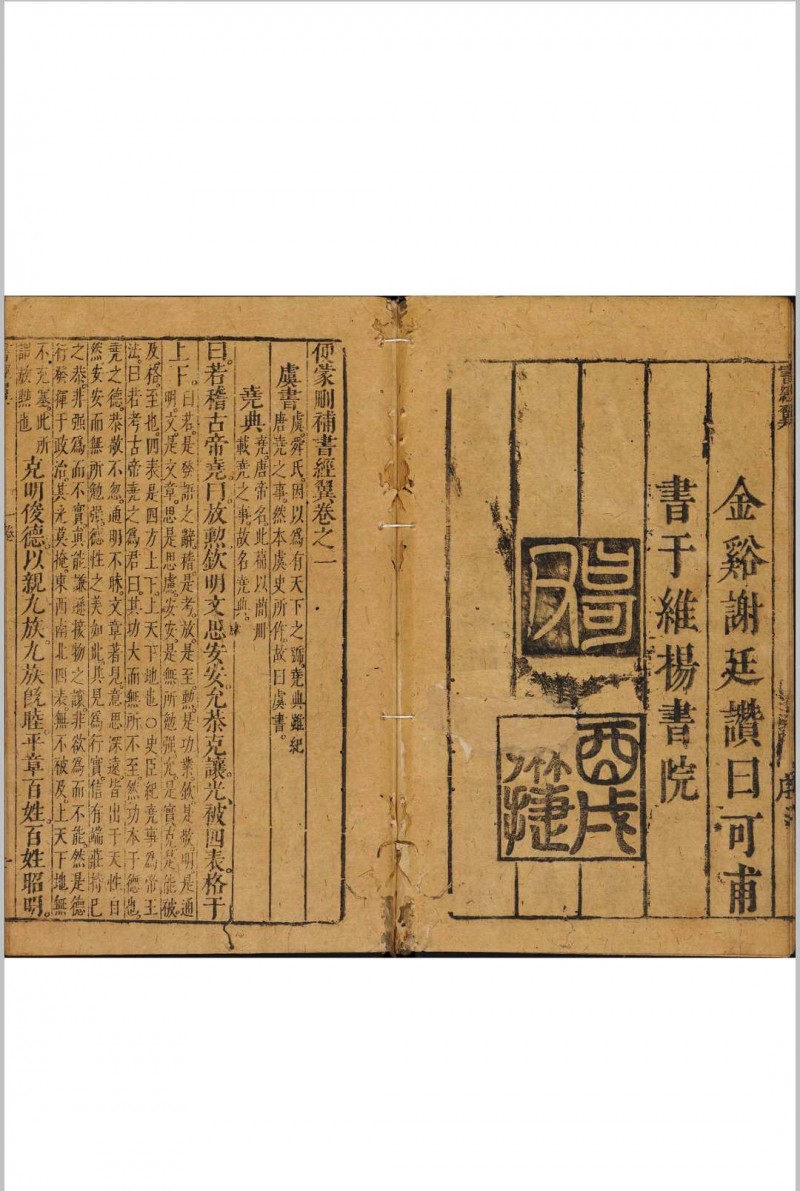 金谿謝廷讚曰可甫
書于維揚書院
便蒙刪補書經翼卷之一
虞書虞舜氏因以為有天下之號堯典雖紀
唐堯之事然本虞史所作故曰虞書。
堯典堯唐帝名此篇以簡冊
載堯之事故名堯典。
曰若稽古帝堯曰放勲欽明文思安安允恭克讓光被四表格于
上下。曰若是發語之辭稽是考放是至勲是功業欽是敬明是通
明文是文章思是思慮安安是無所勉强允是實克是能被
及格至也四表是四方上下上天下地也○史臣紀堯事為帝王
法曰若考古帝堯之為君曰其功大而無所不至然功本于德也
堯之德恭敬不忽通明不昧文章著見意思深遠皆出于天性自
然安安而無所勉强德性之美如此其見為行實信有端莊持己
之恭非强為而不實真能謙遜接物之讓非欲為而不能然是德
行發揮于政治其光莫掩東西南北四表無不被及上天下地無
不充塞此所
謂放勲也克明俊德以親九族九族既睦平章百姓百姓昭明